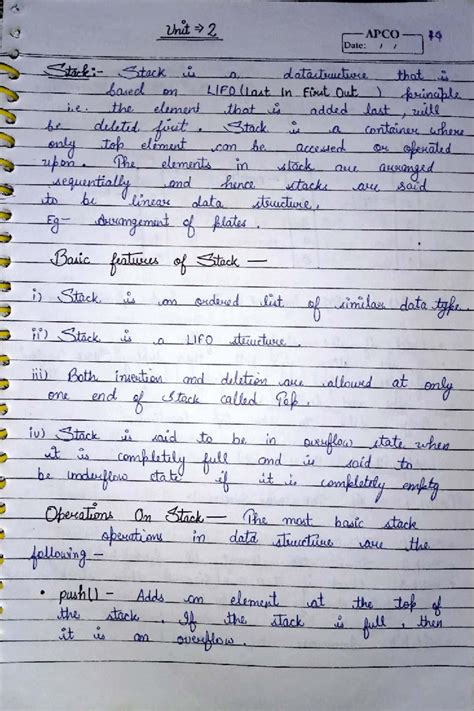 Unit ⇒ 2
APCO
Date: / /
Stack:- Stack is a datastructure that is
based on LIFO (Last In First Out ) principle
i.e. the element that is added last, will
be deleted first. Stack is a container where
only top element can be accessed or operated
upon. The elements in stack are arranged
sequentially and hence stacks are said
to be linear data structure.
Eg- Arrangement of plates.
Basic features of Stack —
i) Stack is an ordered list of similar data type.
ii) Stack is a LIFO structure.
iii) Both insertion and deletion are allowed at only
one end of Stack called Top.
iv) Stack is said to be in overflow state when
it is completely full and is said to
be underflow state if it is completely empty
Operations On Stack — The most basic stack
operations in data structure are the
following -
• push() - Adds an element at the top of
the stack. If the stack is full, then
it is an overflow.